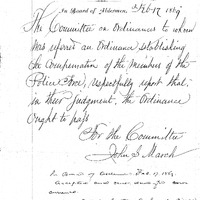 In Board of Aldermen Feb 17 1869
The Committee on Ordinances to whom
was referred an Ordinance establishing
the Compensation of the members of the
Police Force, respectfully report that
in their judgment, the Ordinance
ought to pass
For the Committee
John S. March
In Board of Aldermen Feb. 17, 1869
Accepted and